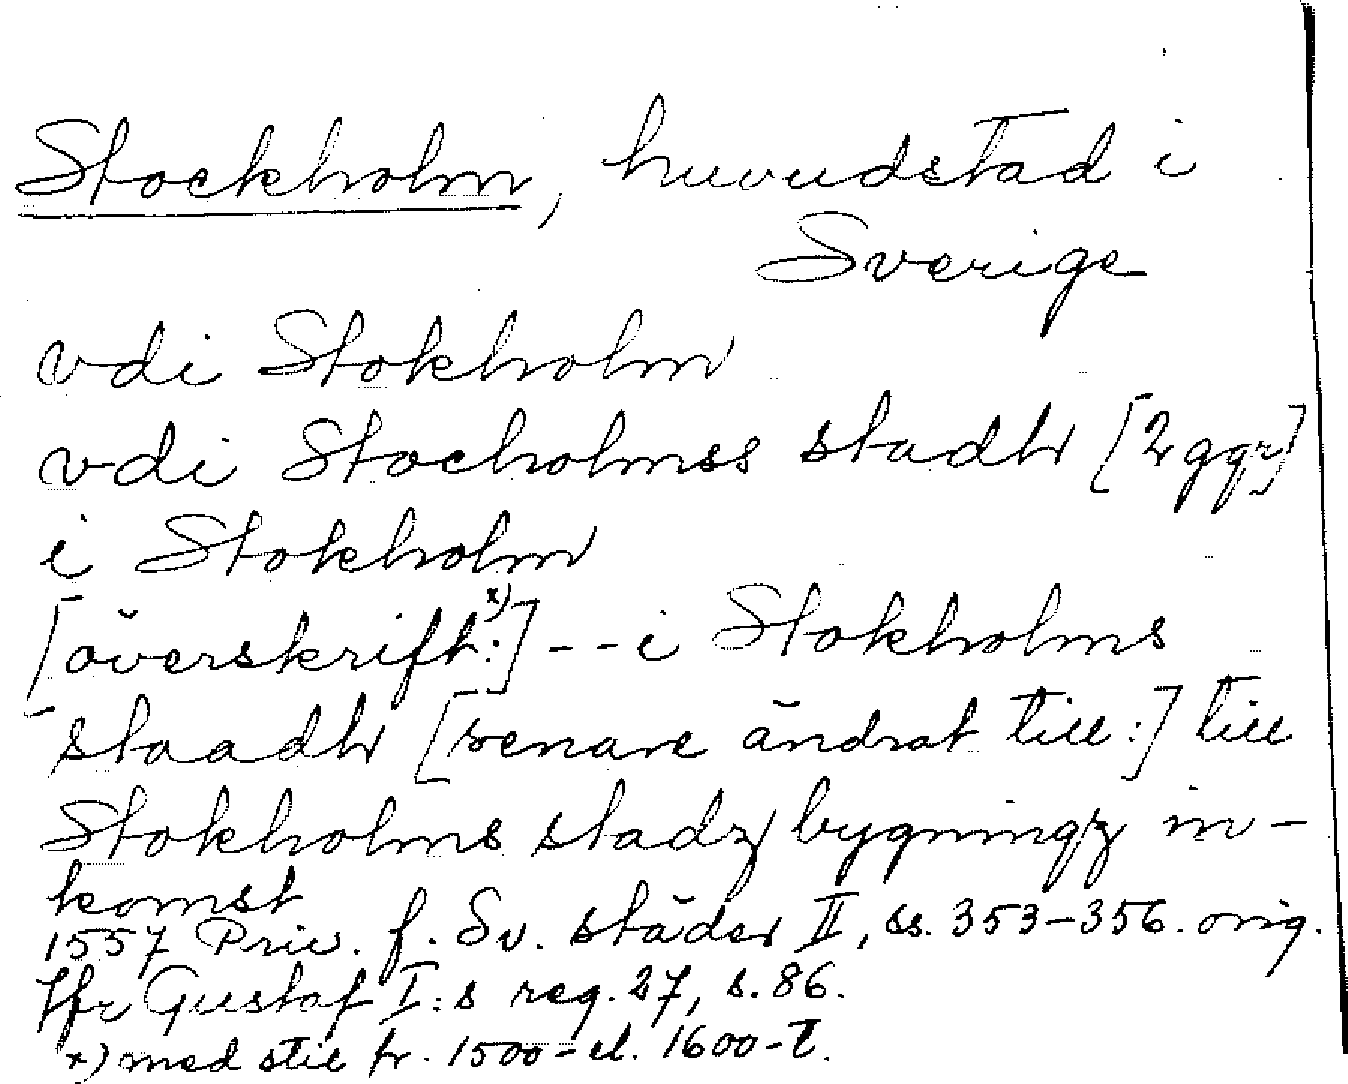 Stockholm, huvudstad i
Sverige
vdi Stokholm
vdi Stocholmss stadh [2 ggr]
i Stokholm
[överskrift x):] --- i Stokholms
staadh [senare ändrat till:] till
Stokholms stadz bygningz in-
komst
1557 Priv. f. Sv. städer II, ss. 353-356. orig.
Jfr Gustaf I:s reg. 27, s. 86.
x) med stil fr. 1500- el. 1600-t.